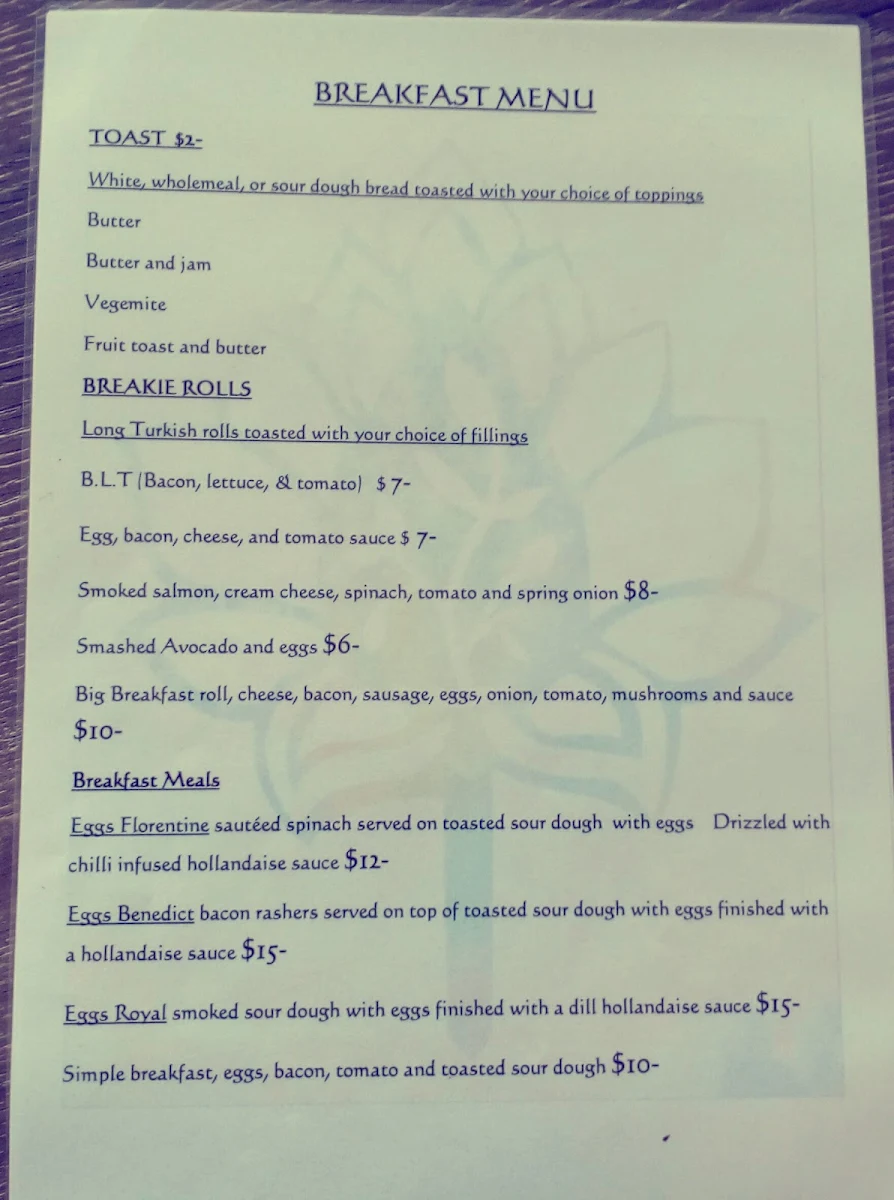 BREAKFAST MENU
TOAST $2-
White, wholemeal, or sour dough bread toasted with your choice of toppings
Butter
Butter and jam
Vegemite
Fruit toast and butter
BREAKIE ROLLS
Long Turkish rolls toasted with your choice of fillings
B.L.T (Bacon, lettuce, & tomato) $ 7-
Egg, bacon, cheese, and tomato sauce $ 7-
Smoked salmon, cream cheese, spinach, tomato and spring onion $8-
Smashed Avocado and eggs $6-
Big Breakfast roll, cheese, bacon, sausage, eggs, onion, tomato, mushrooms and sauce
$10-
Breakfast Meals
Eggs Florentine sautéed spinach served on toasted sour dough with eggs Drizzled with
chilli infused hollandaise sauce $12-
Eggs Benedict bacon rashers served on top of toasted sour dough with eggs finished with
a hollandaise sauce $15-
Eggs Royal smoked sour dough with eggs finished with a dill hollandaise sauce $15-
Simple breakfast, eggs, bacon, tomato and toasted sour dough $10-